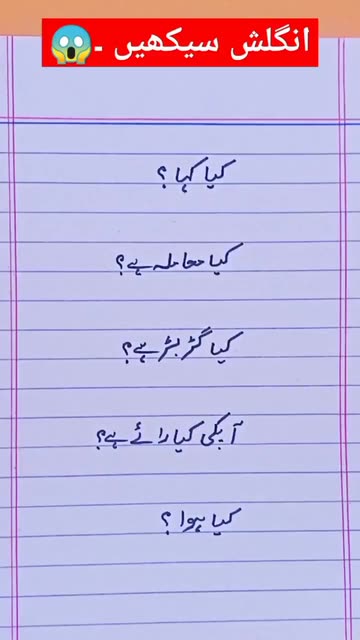 انگلش سیکھیں ۔😱
کیا کہا ؟
کیا معاملہ ہے؟
کیا گڑبڑ ہے؟
آپکی کیا رائے ہے؟
کیا ہوا ؟